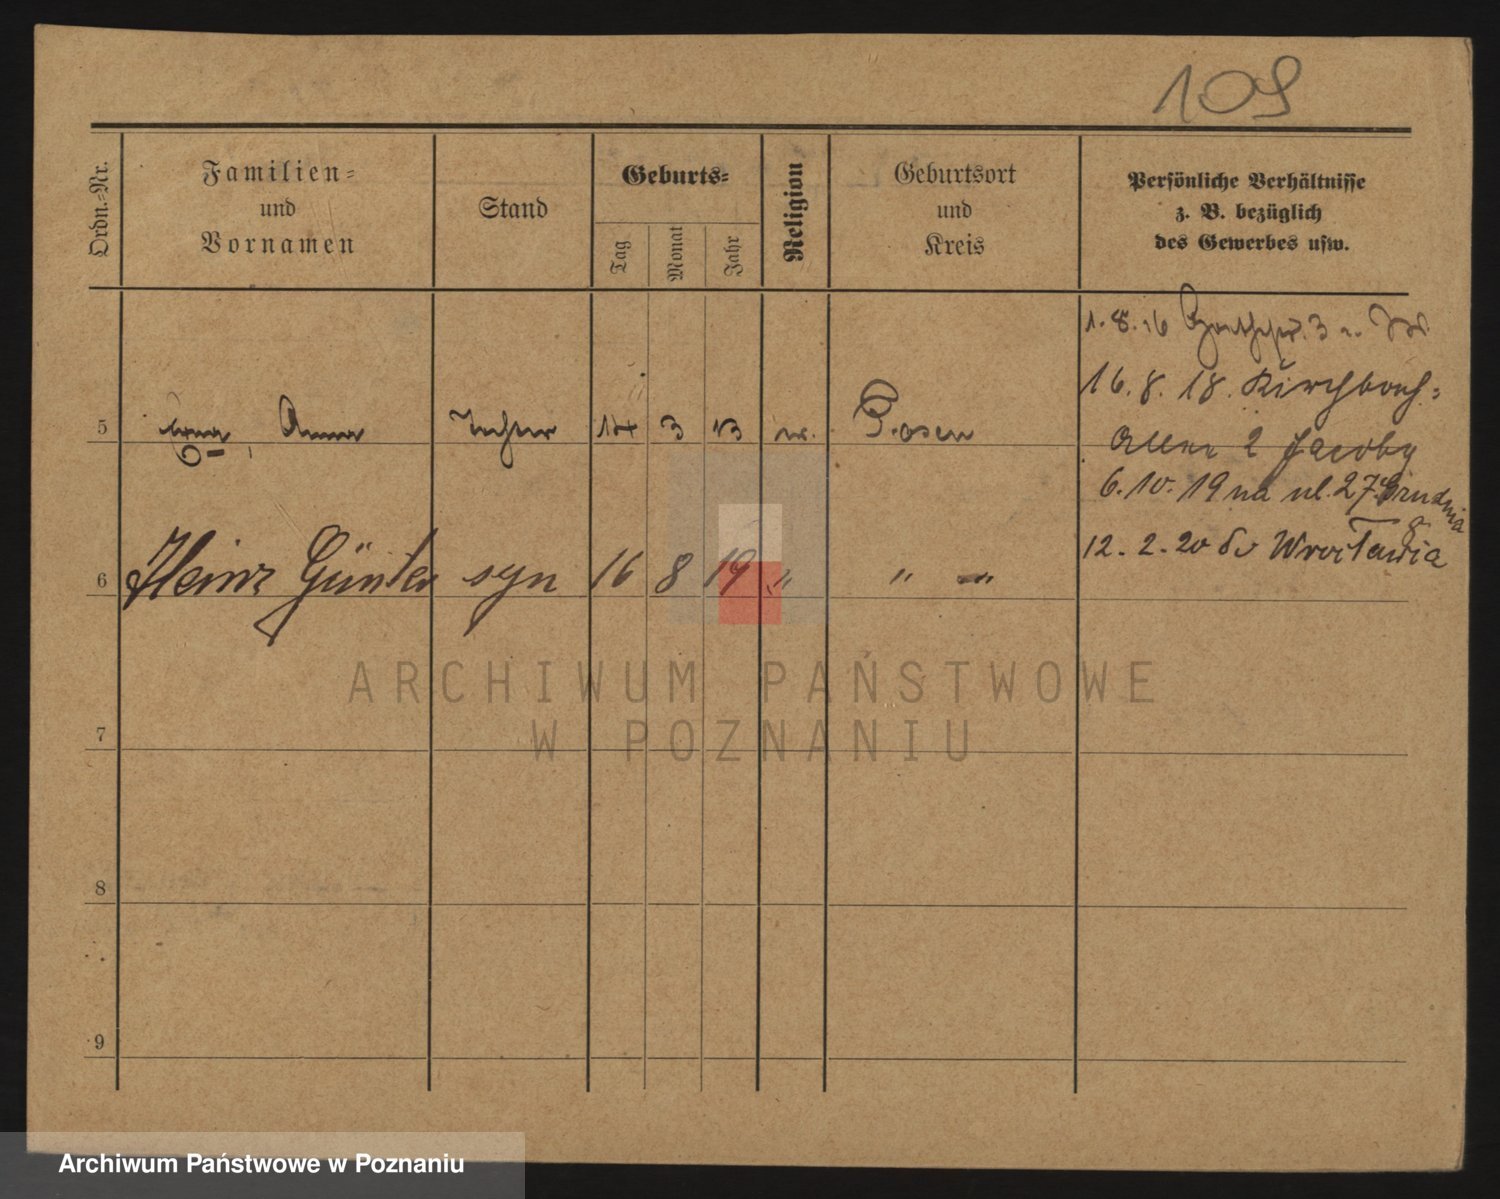 109
Ordn.-Nr.
Familien-
und
Vornamen
Stand
Geburts-
Tag
Monat
Jahr
Religion
Geburtsort
und
Kreis
Persönliche Verhältnisse
z. B. bezüglich
des Gewerbes usw.
1.8.16 3
16.8.18. Kirchbach-
5 Erna, Anna Tochter 14 3 13 Posen
allee 2 Jacoby
6.10.19 na ul. 27 Grudnia
12.2.20 do Wrocławia
6 Heinz Günter syn 16 8 19 " " — "
7
8
9
ARCHIWUM PAŃSTWOWE
W POZNANIU
Archiwum Państwowe w Poznaniu